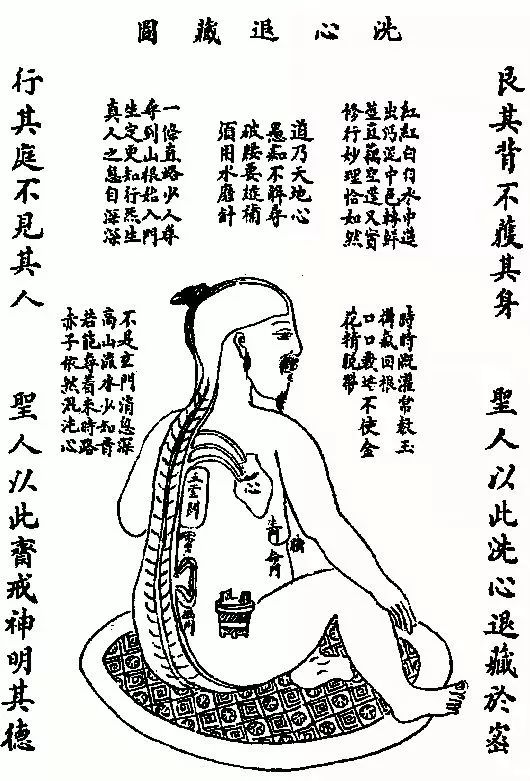 洗心退藏圖
艮其背不獲其身
聖人以此洗心退藏於密
紅紅白白水中蓮
出污泥中色轉鮮
莖直藕空蓬又實
修行妙理恰如然
道乃天地心
愚痴不解尋
破腰要挺補
須用水磨針
一條直路少人尋
尋到山根始入門
定更知行炁
真人之息自深深
時時溉灌常教玉
氣回根
口口栽培不使金
花精脫蒂
不是玄門消息深
高山流水少知音
若能尋着來時路
赤子依然混沌心
行其庭不見其人
聖人以此齋戒神明其德
心